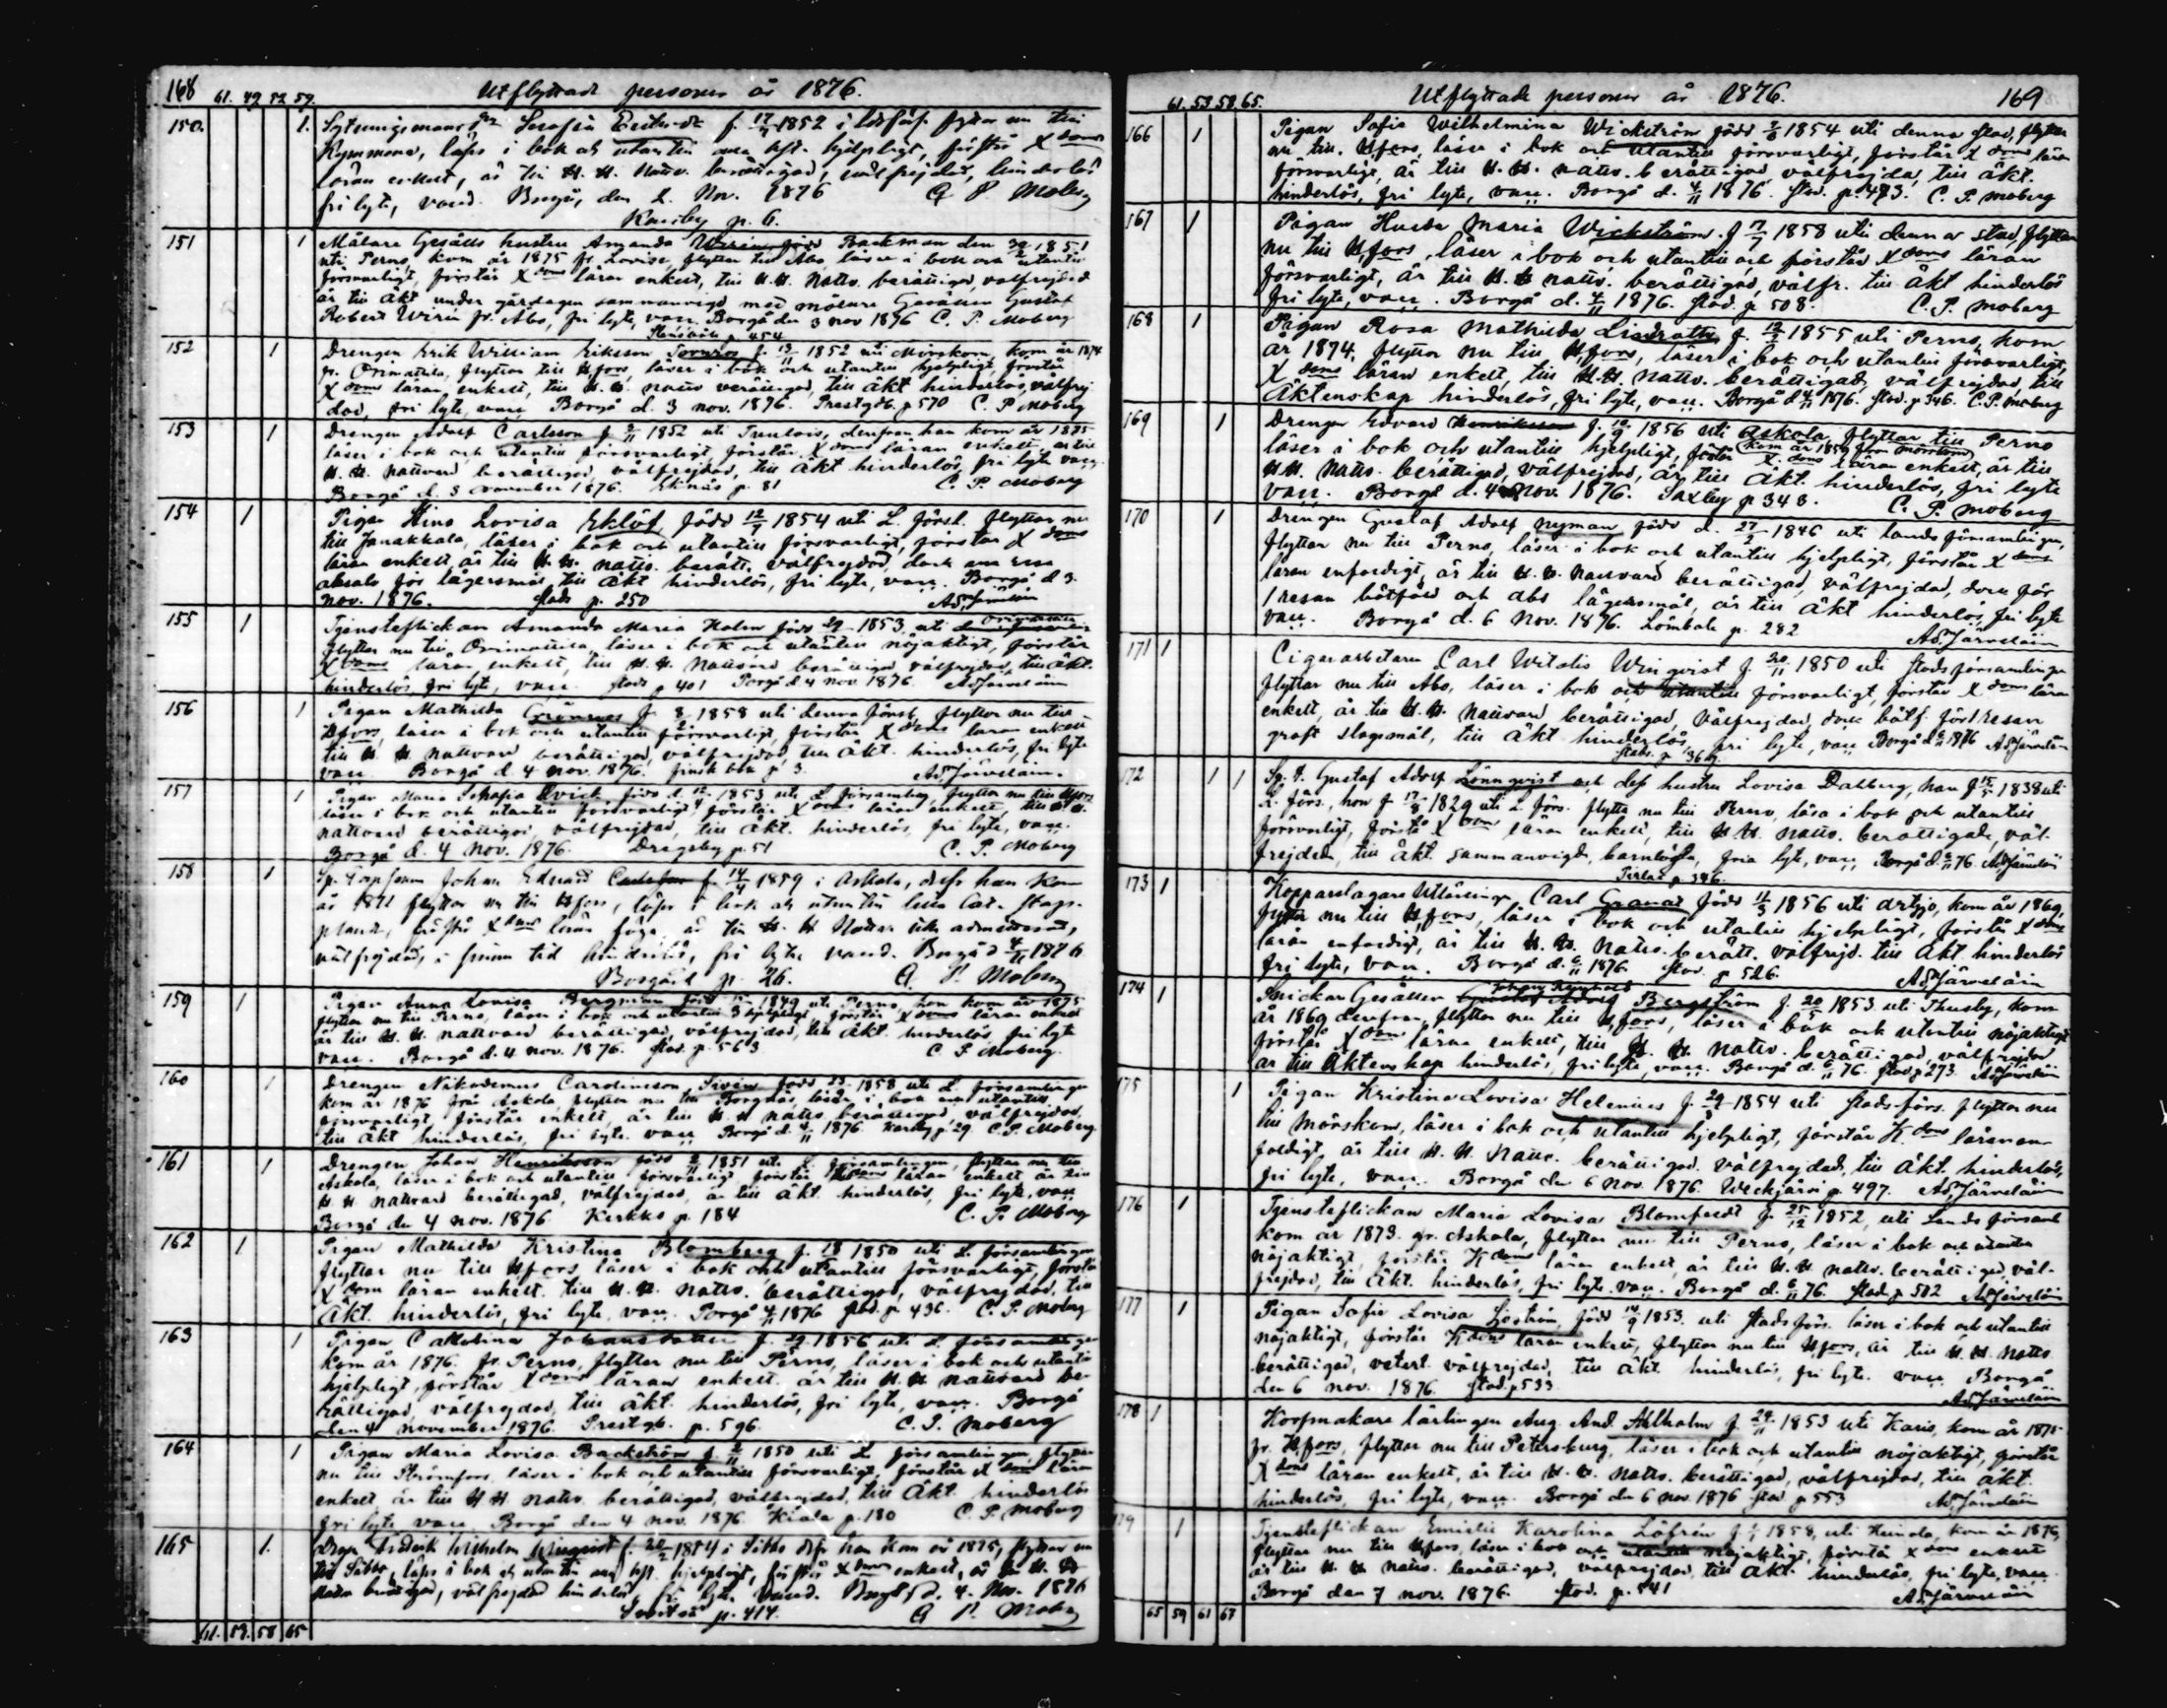 168 61. 49 52 59. Utflyttade personer år 1876.
150. 1. f. 17/7 1852 i flyttar nu till
läser i bok och utantill hjelpligt, förstår X doms
läran enkelt, är till H. H. Nattv. berättigad, välfrejdad, hinderlös
fri lyte, vacc. Borgå, den 2. Nov. 1876 C. P. Moberg
p. 6.
151 1 Målare Gesälls hustru Amanda Wirén född Backman den 1851
uti Perno, kom år 1875 fr. Lovisa, flyttar till Åbo, läser i bok och utantill
försvarligt, förstår X doms läran enkelt, till H. H. Nattv. berättigad, välfrejdad
är till äkt under gårdagen sammanvigd med målare Gesällen Gustaf
Robert Wirén fr. Åbo, fri lyte, vacc. Borgå den 3 nov 1876 C. P. Moberg
p. 454
152 1 Drengen Erik William Eriksson f. 13/11 1852 uti Mörskom, kom år 1874
fr. Orimattila, flyttar till H,fors, läser i bok och utantill hjelpligt, förstår
X doms läran enkelt, till H. H. nattv berättigad, till äkt hinderlös, välfrej
dad, fri lyte, vacc Borgå d. 3 nov. 1876. Prestgdb. p 570 C. P Moberg
153 1 Drengen Adolf Carlsson f. 2/11 1852 uti Tuulois, derifrån han kom år 1875
läser i bok och utantill försvarligt, förstår X doms läran enkelt, är till
H. H. nattvard berättigad, välfrejdad, till äkt hinderlös, fri lyte vacc.
Borgå d. 3 november 1876. Eknäs p. 81 C. P. Moberg
154 1 Pigan Stina Lovisa Eklöf, född 12/7 1854 uti L. förs. flyttar nu
till Janakkala, läser i bok och utantill försvarligt, förstår X doms
läran enkelt, är till H. H. nattv. berätt. välfrejdad, dock
absolv. för lägersmål, till äkt hinderlös, fri lyte, vacc. Borgå d 3.
nov. 1876. Stads p. 250 Ad. Järveläin
155 1 Tjensteflickan Amanda Maria Holm född 1853 uti
flyttar nu till Orimattila, läser i bok och utantill nöjaktigt, förstår
X doms läran enkelt, till H. H. Nattvard berättigad välfrejdad, till äkt.
hinderlös, fri lyte, vacc. Stads p 401 Borgå d 4 nov. 1876. Ad Järveläin
156 1 Pigan Mathilda f. 1858 uti denna förs., flyttar nu till
H,fors, läser i bok och utantill försvarligt, förstår X doms läran enkelt
till H. H. nattvard berättigad, välfrejdad, till äkt. hinderlös, fri lyte
vacc. Borgå d. 4 nov. 1876. finsk bok p 3. Ad. Järveläin.
157 1 Pigan Maria född d. 12/4 1853 uti L. församling, flyttar nu till H,fors
läser i bok och utantill försvarligt, förstår X doms läran enkelt, till H. H.
nattvard berättigad, välfrejdad, till äkt. hinderlös, fri lyte, vacc.
Borgå d. 4 Nov. 1876. Drägsby p. 51 C. P. Moberg
158 1 Johan Edvard Carlsson f. 14/4 1859 i Askola, han kom
år 1871 flyttar nu till H,fors, läser i bok och utantill
förstår X doms läran är till H. H Nattv. admitterad,
välfrejdad, hinderlös, fri lyte vacc. Borgå d 4/11 1876
Borgå p. 26. C. P. Moberg
159 1 Pigan Anna Lovisa Bergman född 1849 uti Perno, hon kom år 1875
flyttar nu till Perno, läser i bok och utantill hjelpligt, förstår X doms läran enkelt
är till H. H. nattvard berättigad, välfrejdad, till äkt. hinderlös, fri lyte
vacc. Borgå d. 4 nov. 1876. Stad. p. 563 C. P. Moberg.
160 1 Drengen Nikodemus Carolinsson född 1858 uti L. församlingen
kom år 1876 från Askola, flyttar nu till Borgnäs, läser i bok och utantill
försvarligt, förstår enkelt, är till H. H nattv. berättigad, välfrejdad,
till äkt hinderlös, fri lyte. vacc Borgå d. 4/11 1876 p. 29 C. P. Moberg
161 1 Drengen Johan Henriksson född 1851 uti L. församlingen, flyttar nu till
Askola, läser i bok och utantill försvarligt, förstår X doms läran enkelt är till
H. H. nattvard berättigad, välfrejdad, är till äkt. hinderlös, fri lyte, vacc.
Borgå den 4 nov. 1876. Kerkko p. 184 C. P. Moberg
162 1 Pigan Mathilda Kristina Blomberg f. 18 1850 uti L. församlingen
flyttar nu till H,fors, läser i bok och utantill försvarligt, förstår
X doms läran enkelt. till H. H. nattv. berättigad, välfrejdad, till
äkt. hinderlös, fri lyte. vacc. Borgå 4/11 1876 Stad. p. 436. C. P. Moberg
163 1 Pigan Catharina f. 29 1856 uti L. församlingen
kom år 1876. fr. Perno, flyttar nu till Perno, läser i bok och utantill
hjelpligt, förstår X doms läran enkelt. är till H. H nattvard be-
rättigad, välfrejdad, till äkt. hinderlös, fri lyte, vacc. Borgå
den 4 november 1876. Prestgb. p. 596. C. P. Moberg
164 1 Pigan Maria Lovisa Backström f. 1850 uti L församlingen, flyttar
nu till Strömfors, läser i bok och utantill försvarligt, förstår X doms läran
enkelt, är till H H. nattv. berättigad, välfrejdad, till äkt. hinderlös
fri lyte vacc. Borgå den 4 nov. 1876. Kiala p. 180 C. P. Moberg
165 1. Fredrik Wilhelm f. 1854 i Sibbo han kom år 1875, flyttar nu
till Sibbo, läser i bok och utantill hjelpligt, förstår X doms enkelt, är till H. H.
nattv berättigad, välfrejdad hinderlös, fri lyte, vacc. Borgå d. 4. Nov. 1876
p. 414. C. P. Moberg
61. 59. 58 65
61. 53 58. 65. Utflyttade personer år 1876. 169
166 1 Pigan Sofia Wilhelmina Wickström född 1854 uti denna stad, flyttar
nu till. H,fors, läser i bok och utantill försvarligt, förstår X doms läran
försvarligt, är till H. H. nattv. berättigad välfrejdad, till äkt.
hinderlös, fri lyte, vacc. Borgå d. 4/11 1876. Stad. p. 473. C. P. Moberg
167 1 Pigan Hulda Maria Wickström. f 17/7 1858 uti denna stad, flyttar
nu till H,fors, läser i bok och utantill och förstår X doms läran
försvarligt, är till H. H nattv. berättigad, välfr. till äkt hinderlös
fri lyte, vacc. Borgå d. 4/11 1876. Stad. p 508. C. P. Moberg
168 1 Pigan Rosa Mathilda f. 12 1855 uti Perno, kom
år 1874, flyttar nu till H,fors, läser i bok och utantill försvarligt,
X doms läran enkelt, till H.H. nattv. berättigad, välfrejdad, till
äktenskap hinderlös, fri lyte, vacc. Borgå d 4/11 1876. Stad. p 346. C. P. Moberg
169 1 Drengen Edvard Henriksson f. 12/9 1856 uti Askola, flyttar till Perno
(kom år 1859 från Mörskom)
läser i bok och utantill hjelpligt, förstår X doms läran enkelt, är till
H H. Nattv. berättigad, välfrejdad, är till äkt. hinderlös, fri lyte
vacc. Borgå d. 4 Nov. 1876. Saxby p 348. C. P. Moberg
170 1 Drengen Gustaf Adolf Nyman född d. 27/2 1846 uti landsförsamlingen,
flyttar nu till Perno, läser i bok och utantill hjelpligt, förstår X doms
läran enfaldigt, är till H. H. Nattvard berättigad, välfrejdad, dock för
1 resan bötfäld och abs lägersmål, är till äkt hinderlös, fri lyte
vacc. Borgå d. 6 Nov. 1876. p. 282 Ad. Järveläin
171 1 Cigararbetaren Carl Witalis Winqvist f. 20/11 1850 uti Stadsförsamlingen
flyttar nu till Åbo, läser i bok och utantill försvarligt, förstår X doms läran
enkelt, är till H. H. Nattvard berättigad, välfrejdad, dock bötf. förstaresan
groft slagsmål, till äkt hinderlös, fri lyte, vacc Borgå d 6/11 1876 Ad Järveläin
Stads. p 369.
172 1 1 Gustaf Adolf Lönnqvist och dess hustru Lovisa Dahlberg, han f 15 1838 uti
L. förs., hon f 17/8 1829 uti L. förs. flytta nu till Perno, läsa i bok och utantill
försvarligt, förstå X doms läran enkelt, till H H. nattv. berättigade, väl-
frejdade, till äkt sammanvigda, barnlösa, fria lyte, vacc, Borgå d. 6/11 76 Ad Järveläin
p. 346.
173 1 Kopparslagare Utlärlinge Carl Granat född 11/3 1856 uti Artsjö, kom år 1869,
flyttar nu till H,fors, läser i bok och utantill hjelpligt, förstår X doms
läran enfaldigt, är till H. H. Nattv. berätt. välfrejd. till äkt hinderlös
fri lyte, vacc. Borgå d. 6/11 1876. Stad. p 526. Ad. Järveläin
174 1 Snickare Gesällen Gustaf Adolf Bergström f. 20/5 1853 uti Thusby, kom
år 1869 derifrån, flyttar nu till H,fors, läser i bok och utantill nöjaktigt
förstår X doms läran enkelt, till H. H. nattv. berättigad, välfrejdad
är till äktenskap hinderlös, fri lyte, vacc. Borgå d. 6/11 76. Stad p 273. Ad Järveläin
175 1 Pigan Kristina Lovisa Helenius f. 29 1854 uti Stads förs. flyttar nu
till Mörskom, läser i bok och utantill hjelpligt, förstår X doms läran en-
faldigt, är till H. H. Nattv. berättigad. välfrejdad, till äkt. hinderlös,
fri lyte, vacc. Borgå den 6 Nov. 1876. Weckjärvi p. 497. Ad. Järveläin
176 1 Tjensteflickan Maria Lovisa f. 25/12 1852, uti Landsförsaml.
kom år 1873. fr. Askola, flyttar nu till Perno, läser i bok och utantill
nöjaktigt, förstår X doms läran enkelt, är till H. H. nattv. berättigad, väl-
frejdad, till äkt. hinderlös, fri lyte. vacc. Borgå d. 6/11 76. Stad. p 502 Ad Järveläin
177 1 Pigan Sofia Lovisa född 14/9 1853. uti Stads förs. läser i bok och utantill
nöjaktigt, förstår X doms läran enkelt, flyttar nu till H,fors, är till H. H. nattv.
berättigad, veterl. välfrejdad, till äkt. hinderlös, fri lyte. vacc. Borgå
den 6 nov. 1876. Stad. p 533 Ad. Järveläin
178 1 Korfmakare lärlingen Aug. And. Ahlholm f. 24/11 1853 uti Karis, kom år 1875
fr. H,fors, flyttar nu till Petersburg, läser i bok och utantill nöjaktigt, förstår
X doms läran enkelt, är till H. H. nattv. berättigad, välfrejdad, till äkt.
hinderlös, fri lyte, vacc. Borgå den 6 nov. 1876 Stad p 553 Ad. Järveläin
179 1 Tjensteflickan Emilie Karolina Löfrén f 1858, uti Heinola, kom år 1876,
flyttar nu till H,fors, läser i bok och utantill nöjaktigt, förstår X doms enkelt
är till H. H. nattv. berättigad, välfrejdad, till äkt. hinderlös, fri lyte, vacc.
Borgå den 7 nov. 1876. Stad. p. 541 Ad. Järveläin
65 59 61 67